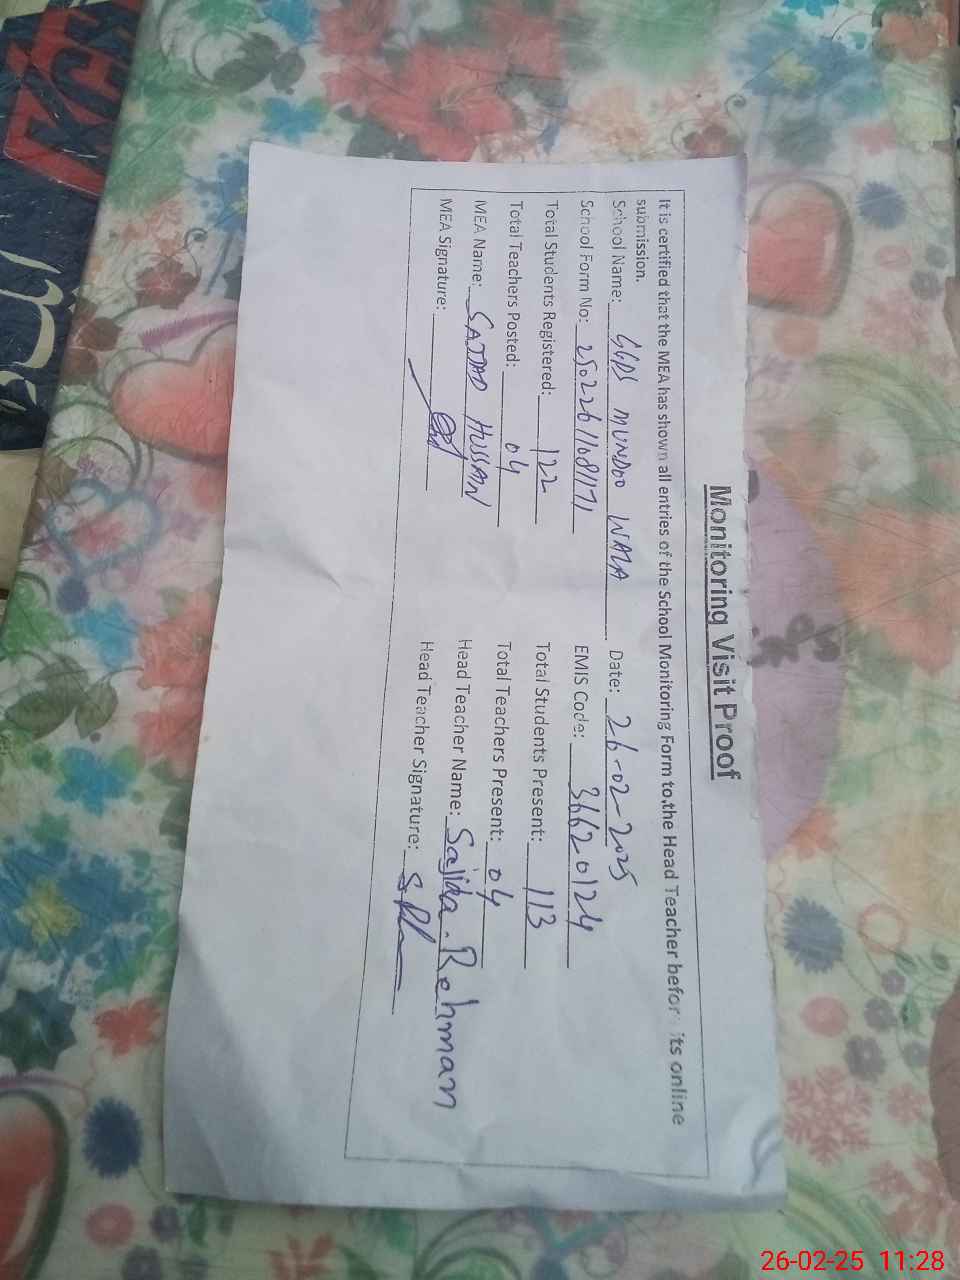 Monitoring Visit Proof
It is certified that the MEA has shown all entries of the School Monitoring Form to the Head Teacher before its online
submission.
School Name: GGPS MUNDOO WALA Date: 26-02-2025
School Form No: 2502261108171 EMIS Code: 36620124
Total Students Registered: 122 Total Students Present: 113
Total Teachers Posted: 04 Total Teachers Present: 04
MEA Name: SAJJAD HUSSAN Head Teacher Name: Sajida. Rehman
MEA Signature: Head Teacher Signature:
26-02-25 11:28